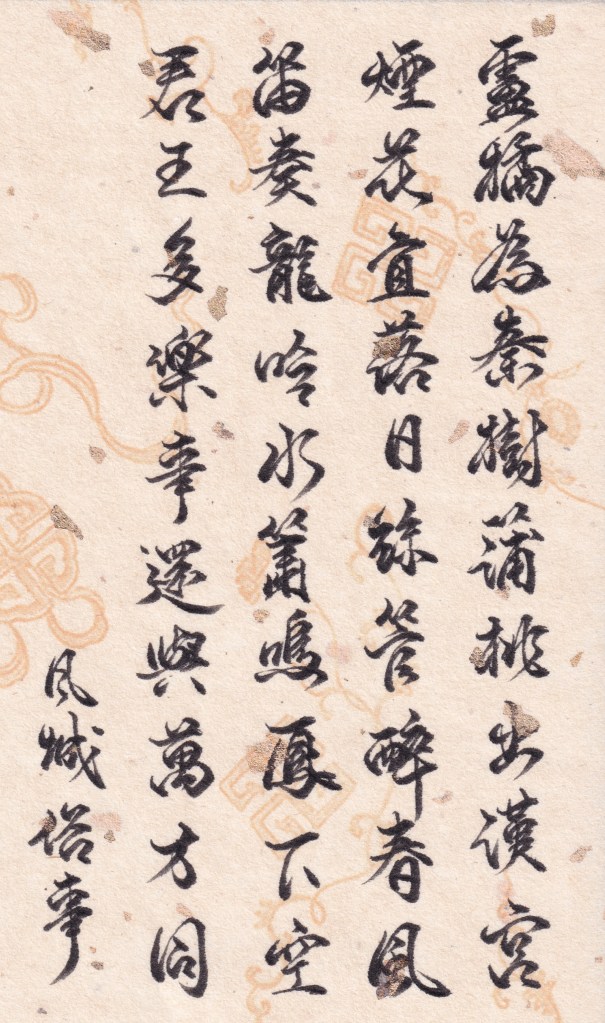 盧橘為秦樹蒲桃出漢宮
煙花宜落日絲管醉春風
笛奏龍吟水簫鳴鳳下空
君王多樂事還與萬方同
風城俗事